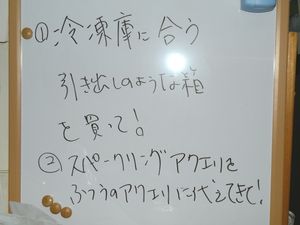 ① 冷凍庫に合う
引き出しのような箱
を買って!
② スパークリングアクエリを
ふつうのアクエリに代えてきて!